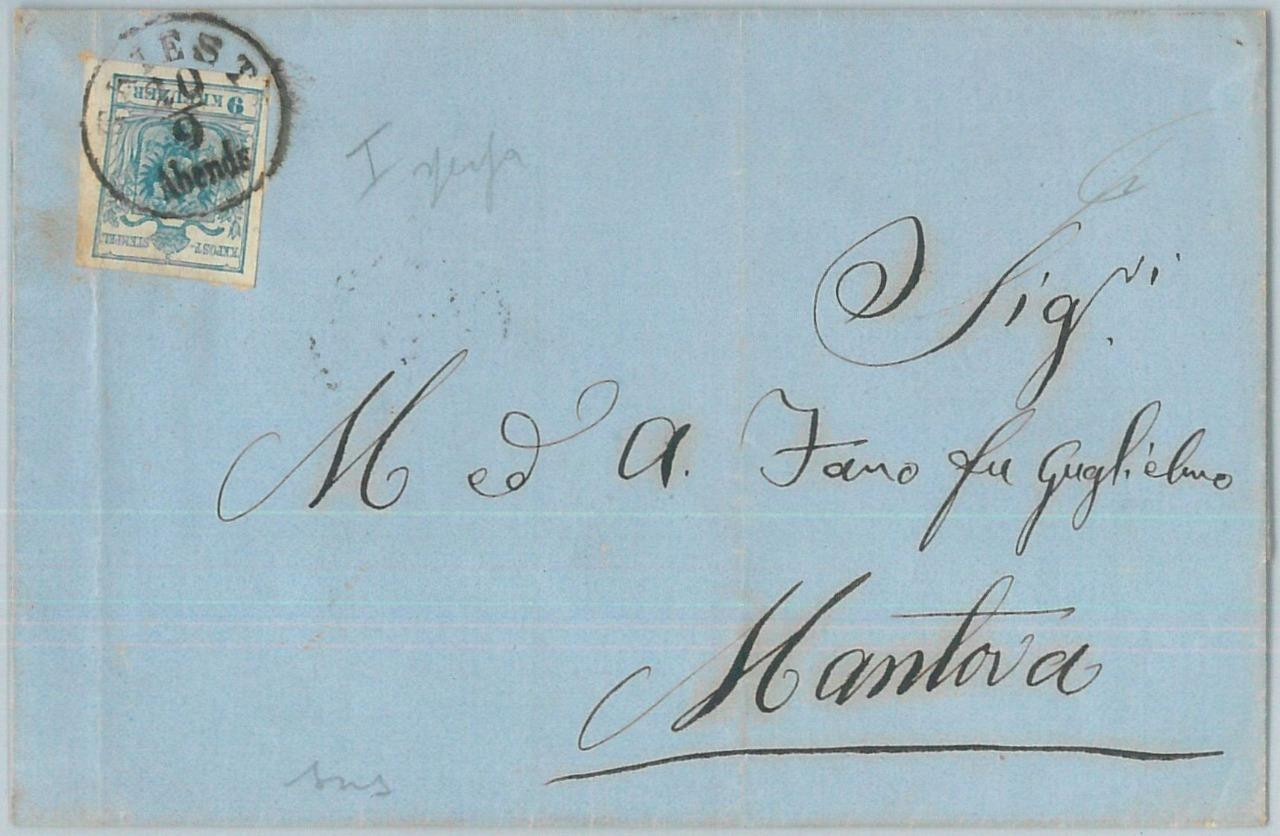 TRIEST
20
9
Abends
9 KREUZER
KKPOST-
STEMPEL
I
Sigri.
M ed A. Fano fu Guglielmo
Mantova